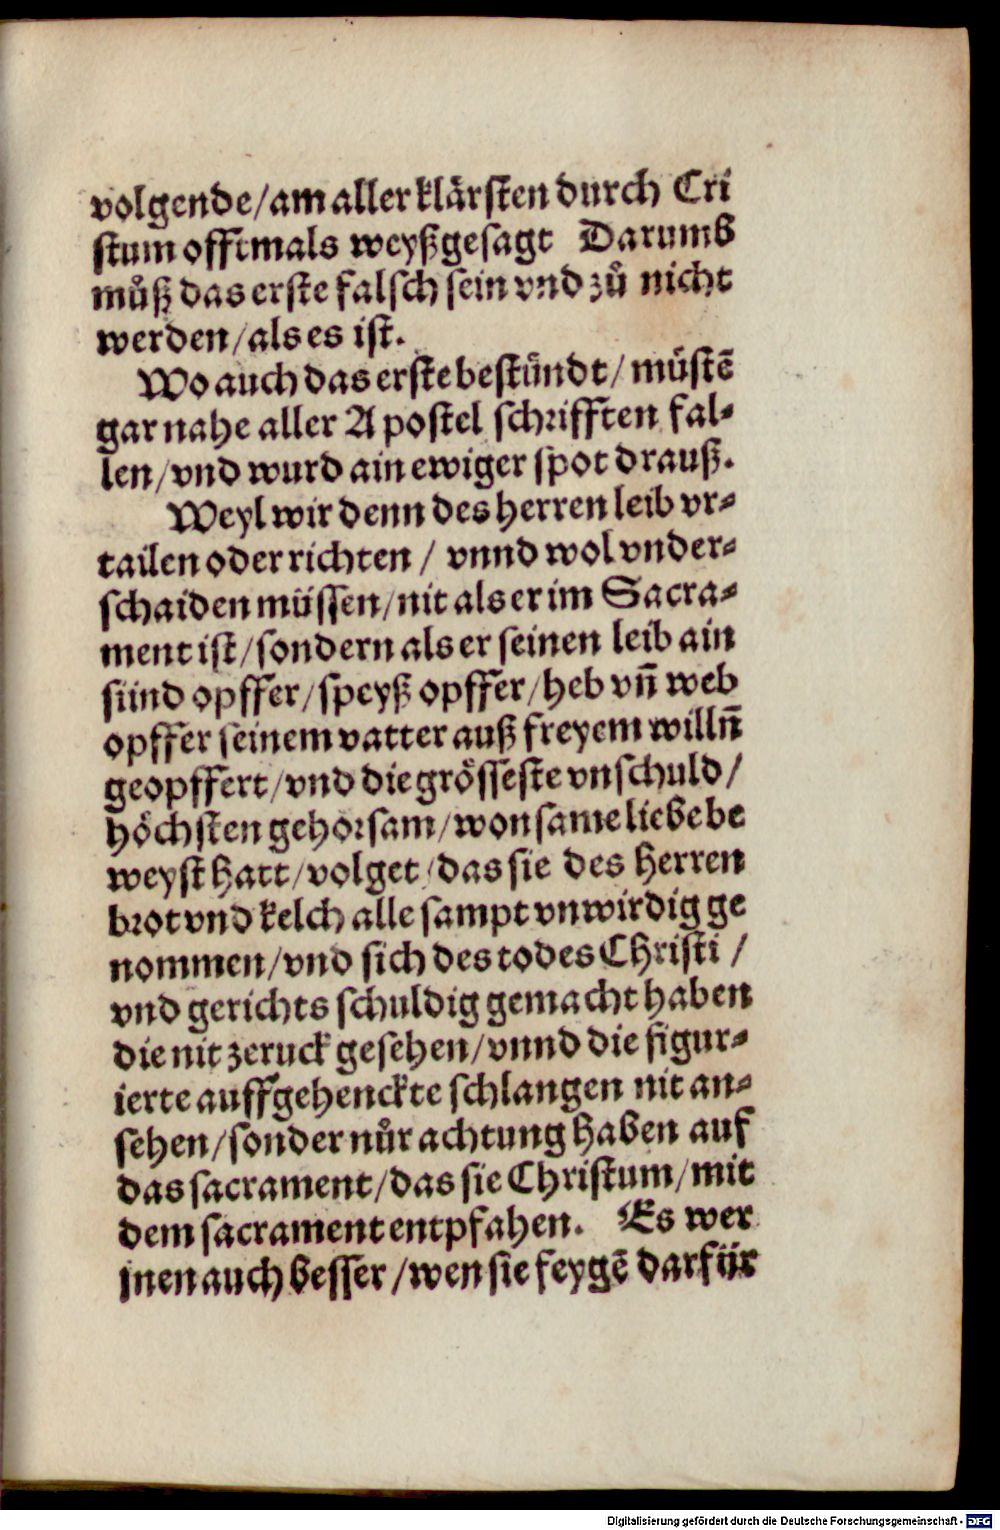 volgende/am aller klårsten durch Cri
stum offtmals weyßgesagt Darumb
můß das erste falsch sein vnd zů nicht
werden/als es ist.
Wo auch das erste bestůndt/můstẽ
gar nahe aller Apostel schrifften fal⸗
len/vnd wurd ain ewiger spot drauß.
Weyl wir denn des herren leib vr⸗
tailen oder richten/ vnnd wol vnder⸗
schaiden müssen/nit als er im Sacra⸗
ment ist/sondern als er seinen leib ain
sünd opffer/speyß opffer/heb vñ web
opffer seinem vatter auß freyem willñ
geopffert/vnd die grösseste vnschuld/
höchsten gehorsam/wonsame liebe be
weyst hatt/volget/das sie des herren
brot vnd kelch alle sampt vnwirdig ge
nommen/vnd sich des todes Christi/
vnd gerichts schuldig gemacht haben
die nit zeruck gesehen/vnnd die figur⸗
ierte auffgehenckte schlangen nit an⸗
sehen/sonder nůr achtung haben auf
das sacrament/das sie Christum/mit
dem sacrament entpfahen. Es wer
jnen auch besser/wen sie feygẽ darfür
Digitalisierung gefördert durch die Deutsche Forschungsgemeinschaft - DFG